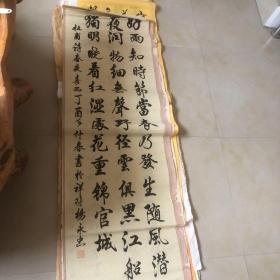 好雨知時節當春乃發生隨風潛
夜潤物細無聲野徑雲俱黑江船
獨明曉看紅濕處花重錦官城
杜甫詩春夜喜雨丁酉年仲春書於祥符楊永忠